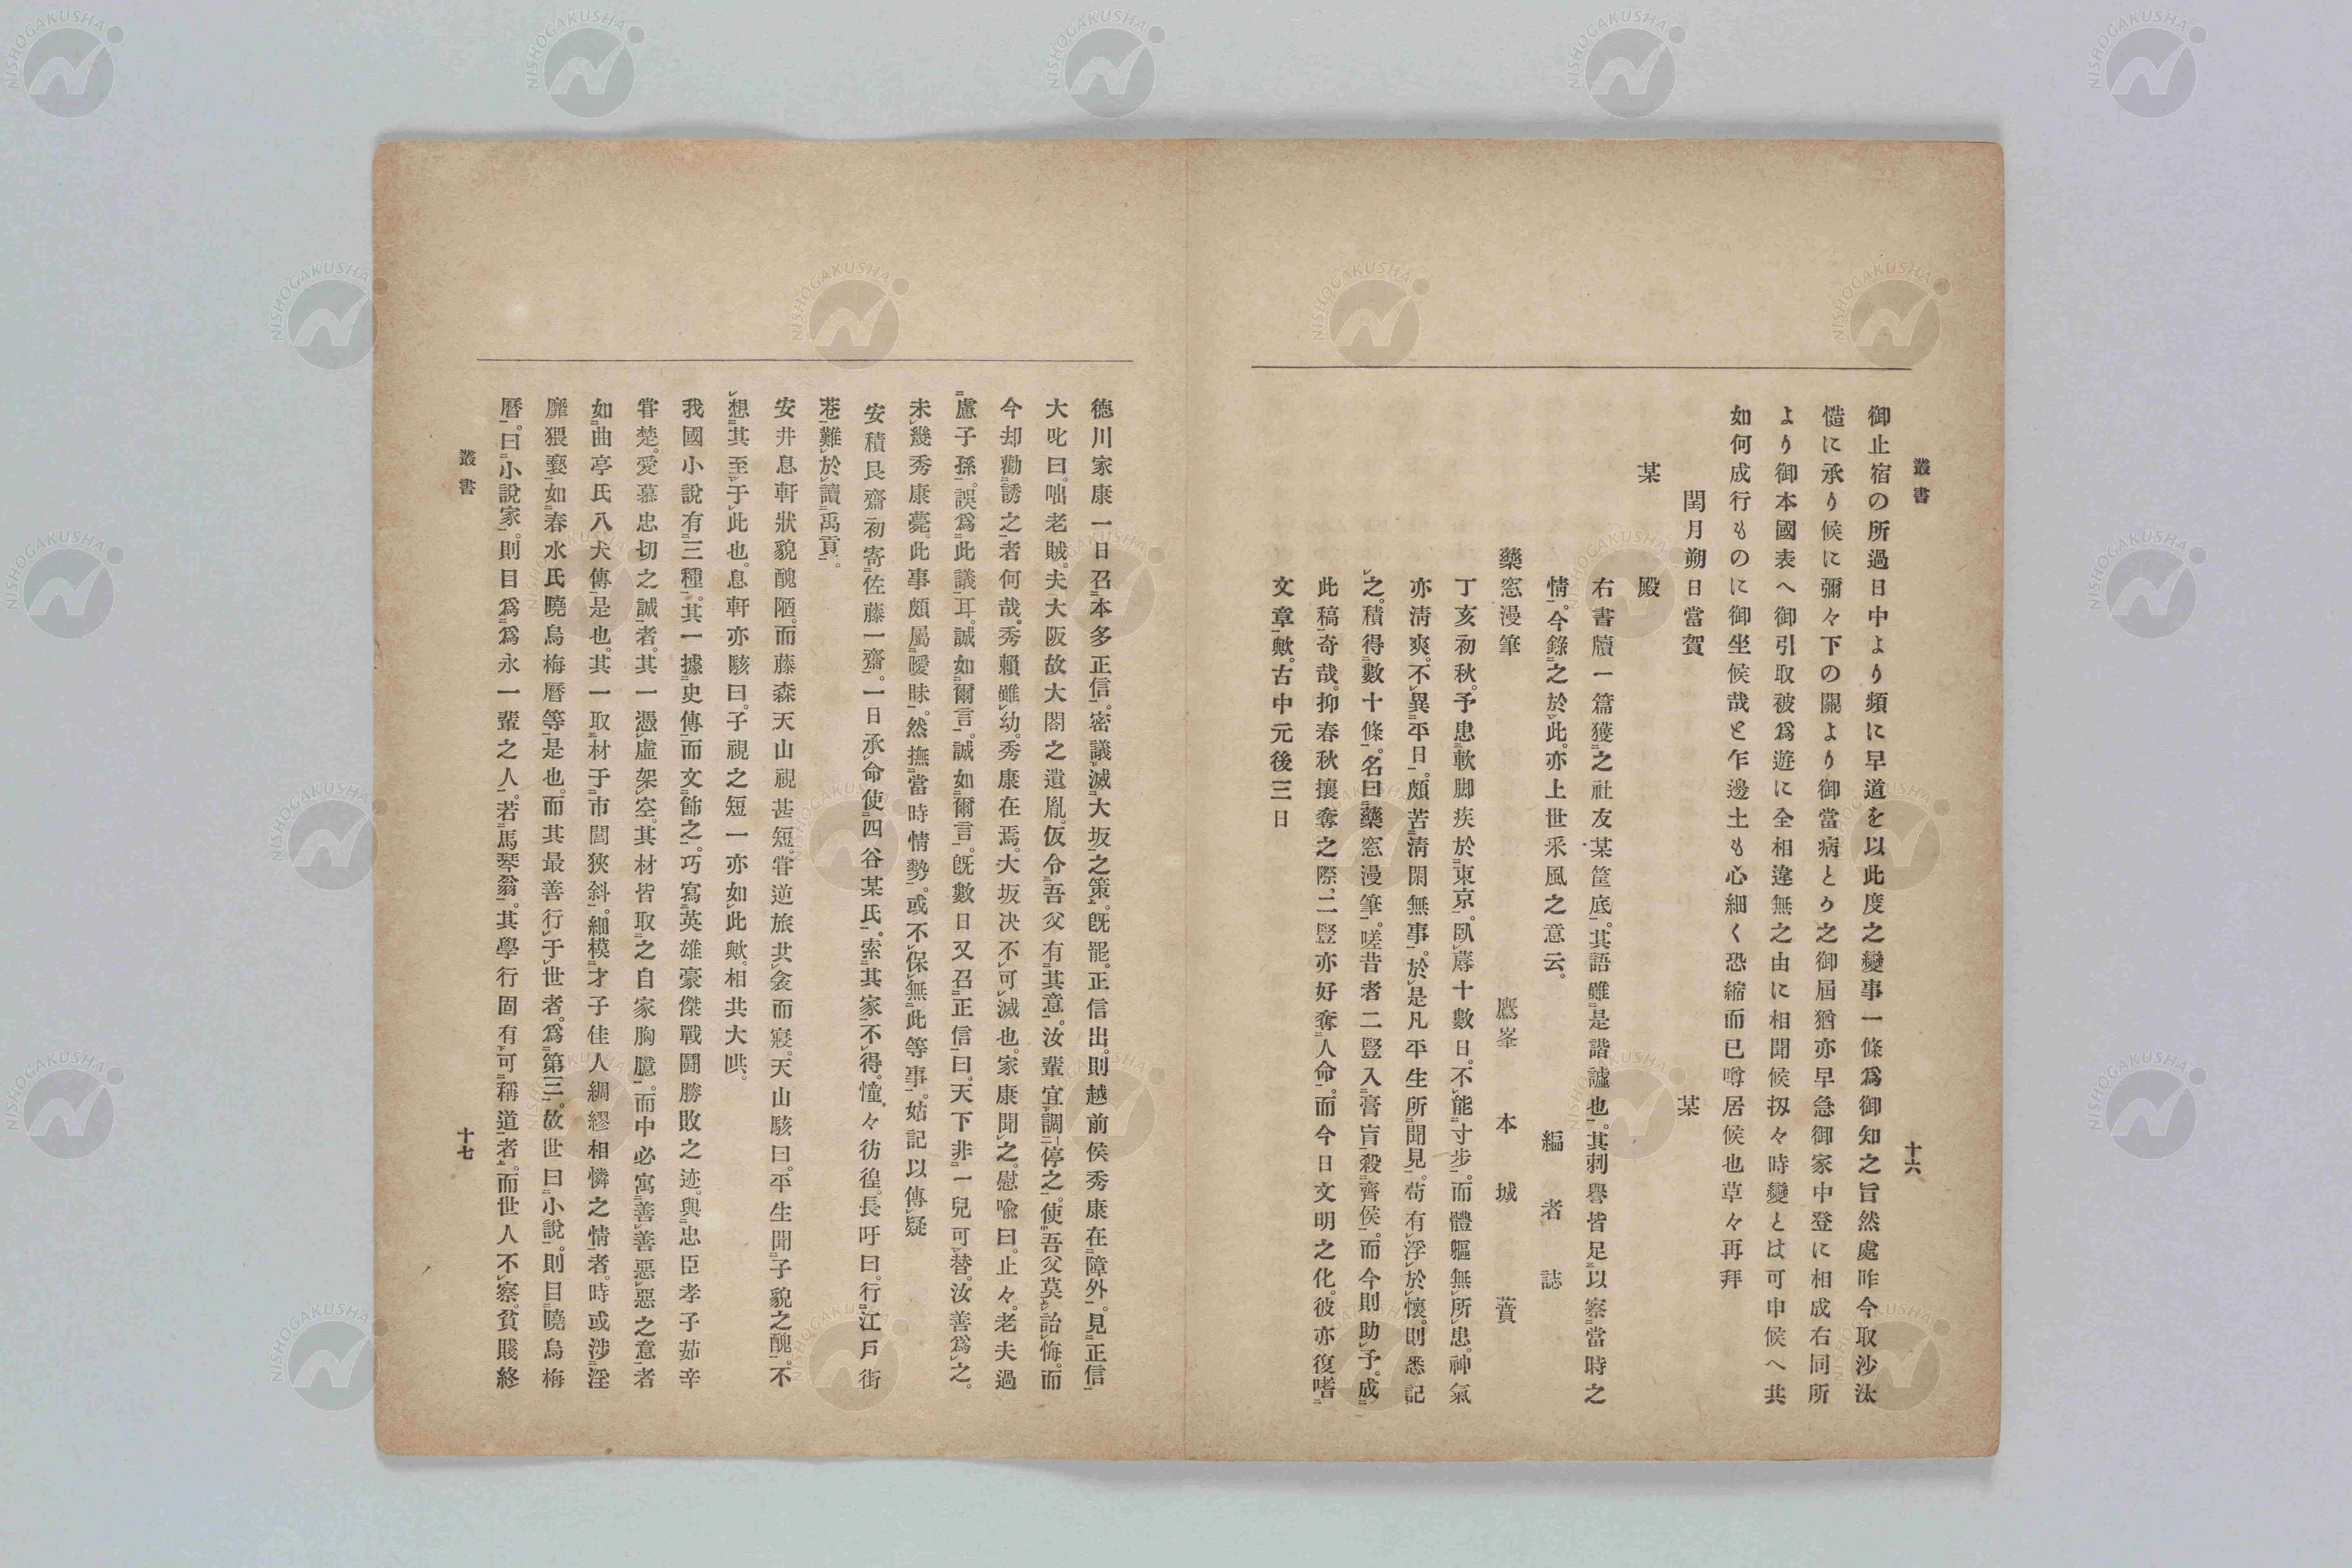 叢書
十六
御止宿の所過日中より頻に早道を以此度之變事一條爲御知之旨然處昨今取沙汰
慥に承り候に彌々下の關より御當病とり之御屆猶亦早急御家中登に相成右同所
より御本國表へ御引取被爲遊に全相違無之由に相聞候扨々時變とは可申候へ共
如何成行ものに御坐候哉と乍邊土も心細く恐縮而已噂居候也草々再拜
閏月朔日當賀
某
某
殿
右書牘一篇獲之社友某筐底。其語雖是諧謔也。其刺譽皆足以察當時之
情。今錄之於此。亦上世采風之意云。
編者誌
藥窓漫筆
鷹峯本城蕡
丁亥初秋。予患軟脚疾於東京。臥蓐十數日。不能寸步。而體軀無所患。神氣
亦淸爽。不異平日。頗苦淸閑無事。於是凡平生所聞見。苟有浮於懷。則悉記
之。積得數十條。名曰藥窓漫筆。嗟昔者二豎入膏肓殺齊侯。而今則助予。成
此稿。奇哉。抑春秋攘奪之際。二豎亦好奪人命。而今日文明之化。彼亦復嗜
文章歟。古中元後三日
德川家康一日召本多正信。密議滅大坂之策。旣罷。正信出。則越前侯秀康在障外。見正信
大叱曰。咄老賊。夫大阪故大閤之遺胤。仮令吾父有其意。汝輩宜調停之。使吾父莫詒悔。而
今却勸誘之者何哉。秀賴雖幼。秀康在焉。大坂决不可滅也。家康聞之。慰喩曰。止々。老夫過
慮子孫。誤爲此議耳。誠如爾言。誠如爾言。旣數日又召正信曰。天下非一兒可替。汝善爲之。
未幾秀康薨。此事頗屬曖昧。然撫當時情勢。或不保無此等事。姑記以傳疑
安積艮齋初寄佐藤一齋。一日承命使四谷某氏。索其家不得。憧々彷徨。長吁曰。行江戶街
巷難於讀禹貢。
安井息軒狀貌醜陋。而藤森天山視甚短。甞逆旅共衾而寢。天山駭曰。平生聞子貌之醜。不
想其至于此也。息軒亦駭曰。子視之短一亦如此歟。相共大哄。
我國小說有三種。其一據史傳而文飾之。巧寫英雄豪傑戰鬪勝敗之迹。與忠臣孝子茹辛
甞楚。愛慕忠切之誠者。其一憑虛架空。其材皆取之自家胸臆。而中必寓善善惡惡之意者
如曲亭氏八犬傳是也。其一取材于市閭狹斜。細模才子佳人綢繆相憐之情者。時或涉淫
靡猥褻。如春水氏曉烏梅曆等是也。而其最善行于世者。爲第三。故世曰小說。則目曉烏梅
曆。曰小說家。則目爲爲永一輩之人。若馬琴翁。其學行固有可稱道者。而世人不察。貧賤終
叢書
十七